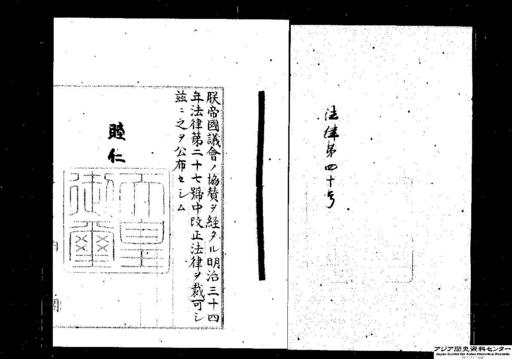 法律第四十号
朕帝國議會ノ協賛ヲ経タル明治三十四
年法律第二十七號中改正法律ヲ裁可シ
茲ニ之ヲ公布セシム
睦仁
天皇
御璽
アジア歴史資料センター
Japan Center for Asian Historical Records